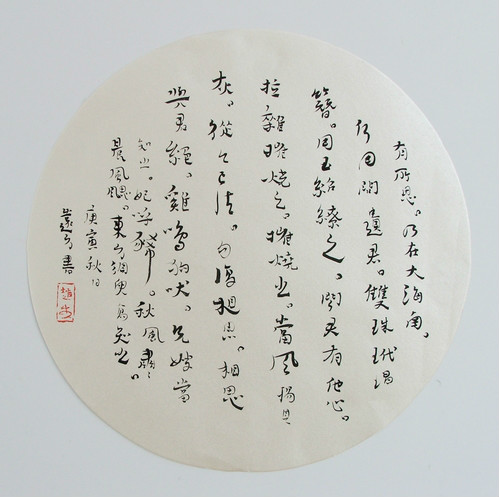 有所思。乃在大海南。
何用問遺君。雙珠玳瑁
簪。用玉紹繚之。聞君有他心。
拉雜摧燒之。摧燒之。當風揚其
灰。從今已往。勿復相思。相思
與君絕。雞鳴狗吠。兄嫂當
知之。妃呼豨。秋風肅肅
晨風颸。東方須臾高知之。
庚寅秋日
書